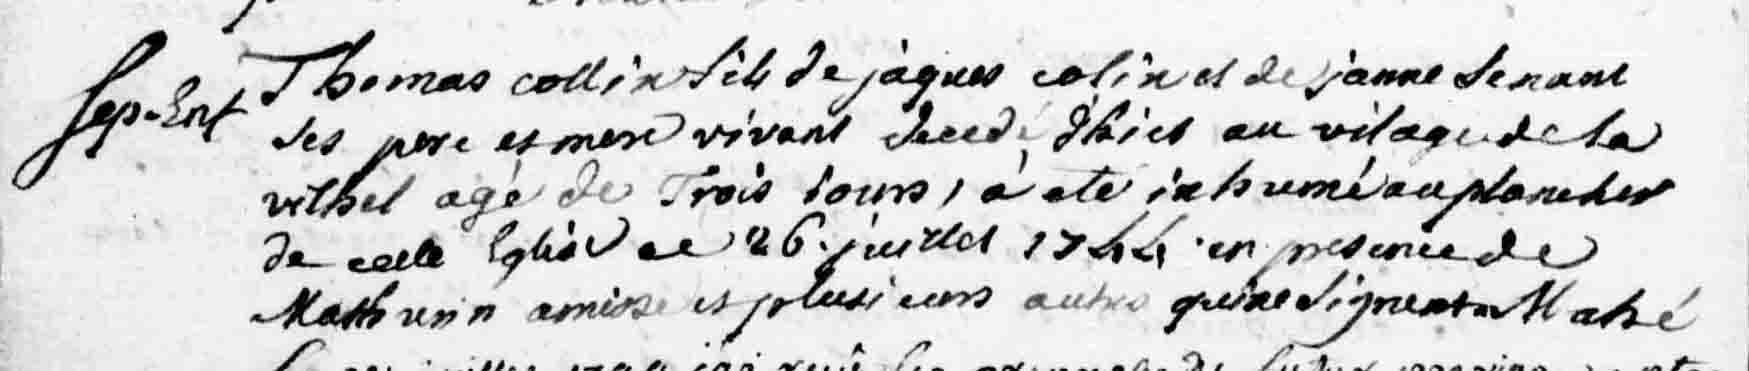 Sep. Enf
Thomas collin fils de jaques colin et de janne Lenant
ses pere et mere vivant decedé d'hier au vilage de la
vilhel agé de Trois iours, a eté inhumé au plancher
de cette Eglise ce 26. juillet 1744 en presence de
Mathurin amisse et plusieurs autres qui ne signent Mahé